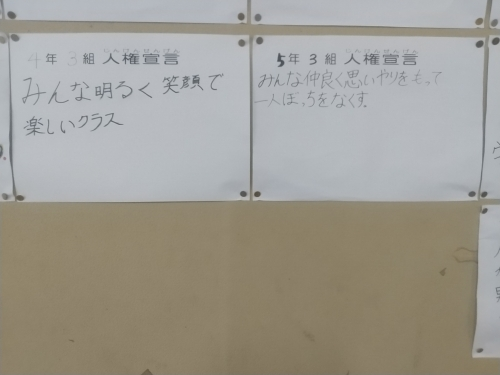 4年 3組 人権宣言
みんな明るく笑顔で
楽しいクラス
5年 3組 人権宣言
みんな仲良く思いやりをもって
一人ぼっちをなくす。